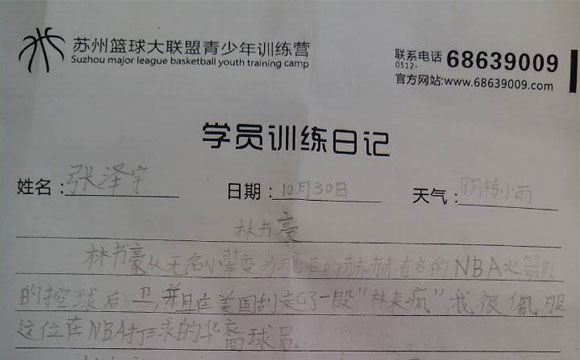 苏州篮球大联盟青少年训练营
Suzhou major league basketball youth training camp
联系电话 0512- 68639009
官方网站:www.68639009.com
学员训练日记
姓名: 张泽宇 日期: 10月30日 天气: 阴转小雨
林书豪
林书豪从无名小辈变为现在的赫赫有名的NBA火箭队
的控球后卫,并且在美国刮起了一股“林来疯”,我很佩服
这位在NBA打球的华裔球员。